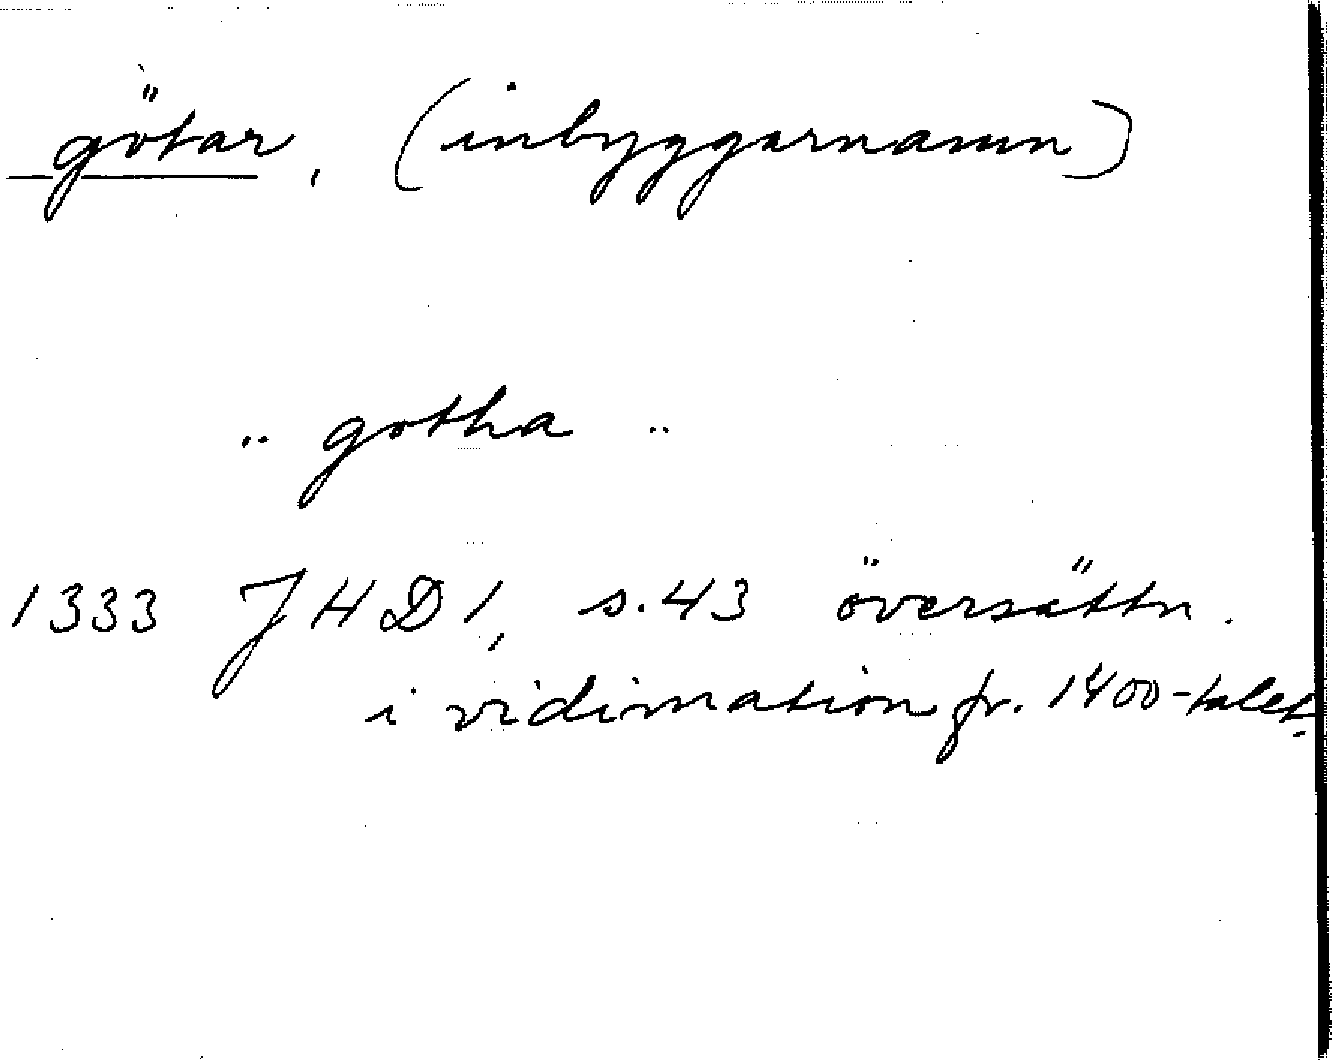 götar, (inbyggarnamn)
.. gotha ..
1333 JHD 1, s. 43 översättn.
i vidimation fr. 1400-talet.